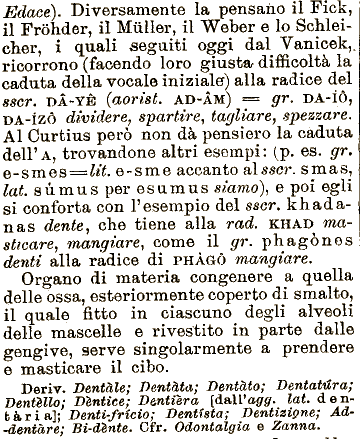 Edace). Diversamente la pensano il Fick,
il Fröhder, il Müller, il Weber e lo Schlei-
cher, i quali seguiti oggi dal Vanicek,
ricorrono (facendo loro giusta difficoltà la
caduta della vocale iniziale) alla radice del
sscr. DÂ-YÊ (aorist. AD-ÂM) = gr. DA-ÍÔ,
DA-ÍZÔ dividere, spartire, tagliare, spezzare.
Al Curtius però non dà pensiero la caduta
dell'A, trovandone altri esempi: (p. es. gr.
e-smes=lit. e-sme accanto al sscr. smas,
lat. súmus per esumus siamo), e poi egli
si conforta con l'esempio del sscr. khada-
nas dente, che tiene alla rad. KHAD ma-
sticare, mangiare, come il gr. phagònes
denti alla radice di PHÀGÔ mangiare.
Organo di materia congenere a quella
delle ossa, esteriormente coperto di smalto,
il quale fitto in ciascuno degli alveoli
delle mascelle e rivestito in parte dalle
gengive, serve singolarmente a prendere
e masticare il cibo.
Deriv. Dentàle; Dentàta; Dentàto; Dentatúra;
Dentèllo; Dèntice; Dentièra [dall'agg. lat. den-
tària]; Denti-frício; Dentísta; Dentizióne; Ad-
-dentàre; Bi-dènte. Cfr. Odontalgia e Zanna.